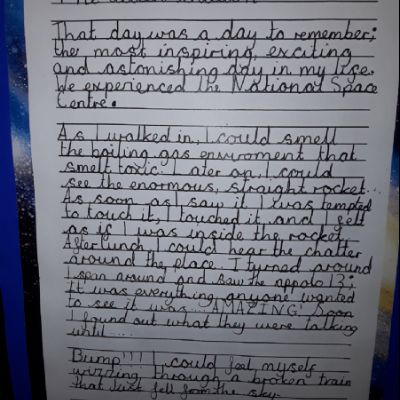 That day was a day to remember;
the most inspiring, exciting
and astonishing day in my life.
We experienced the National Space
Centre.
As I walked in, I could smell
the boiling gas enviroment that
smelt toxic. Later on, I could
see the enormous, straight rocket...
As soon as I saw it I was tempted
to touch it, I touched it and I felt
as if I was inside the rocket.
After lunch, I could hear the chatter
around the place. I turned around
I span around and saw the appolo 13;
It was everything anyone wanted
to see it was... AMAZING! Soon
I found out what they were talking
until....
Bump!!! I could feel myself
wizzing through a broken train
that just fell from the sky.